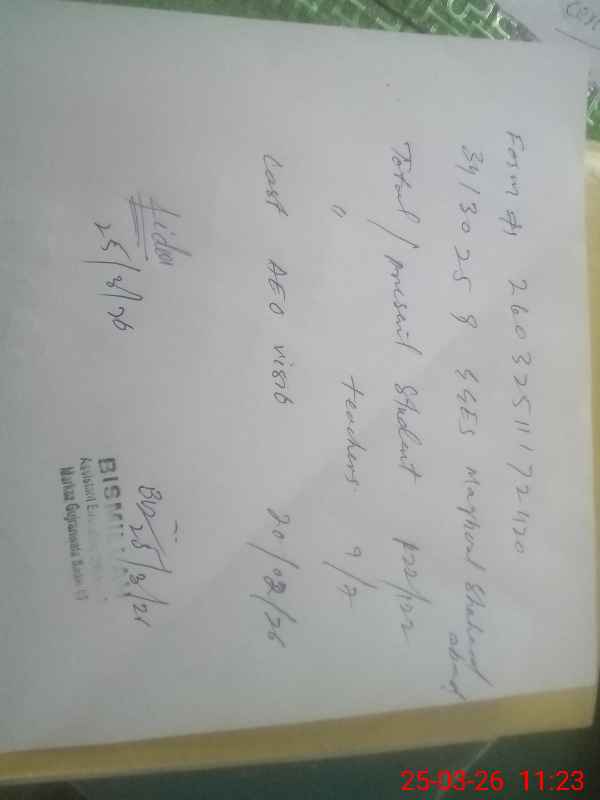 Form # 26032511172420
34130259 GGES Maghool Shaheed abad
Total / present Student 122/122
" teachers 9/7
Last AEO visit 20/02/26
25/3/26
25/3/26
BISMIL
Assistant
Markaz Gujranwala
25-03-26 11:23